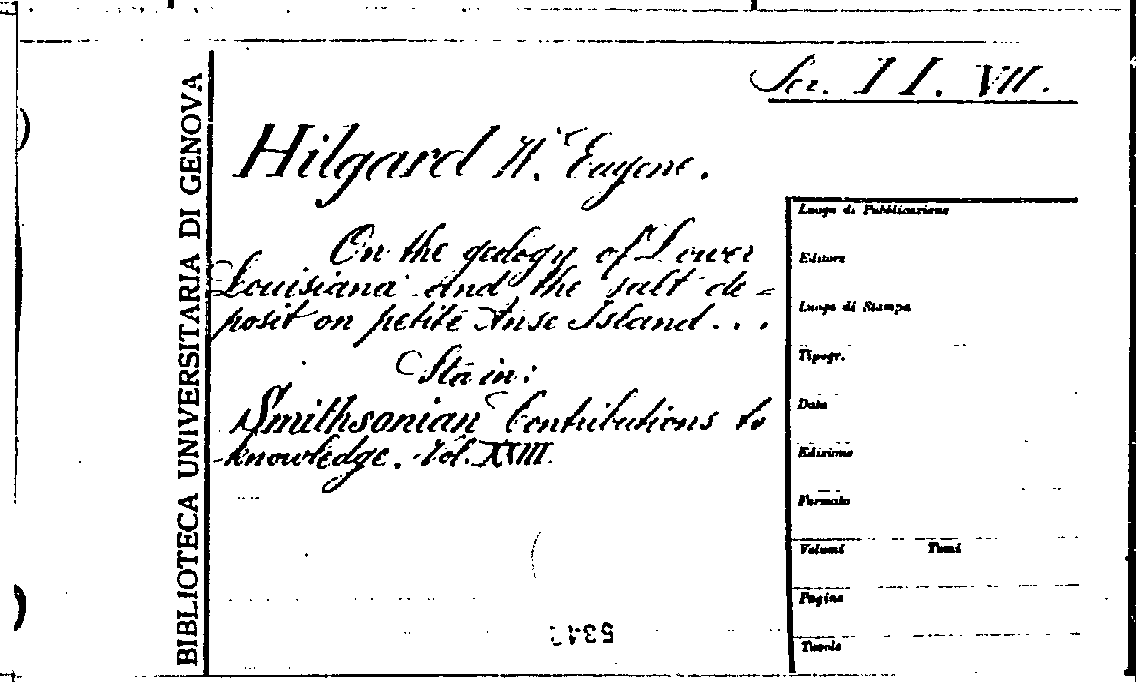 BIBLIOTECA UNIVERSITARIA DI GENOVA
Ser. II. VII.
Hilgard W. Eugene.
On the geology of Lower
Louisiana and the salt de=
posit on petite Anse Island...
Sta in:
Smithsonian Contributions to
knowledge. Vol. XXIII.
Luogo di Pubblicazione
Editore
Luogo di Stampa
Tipogr.
Data
Edizione
Formato
Volumi Tomi
Pagine
Tavole